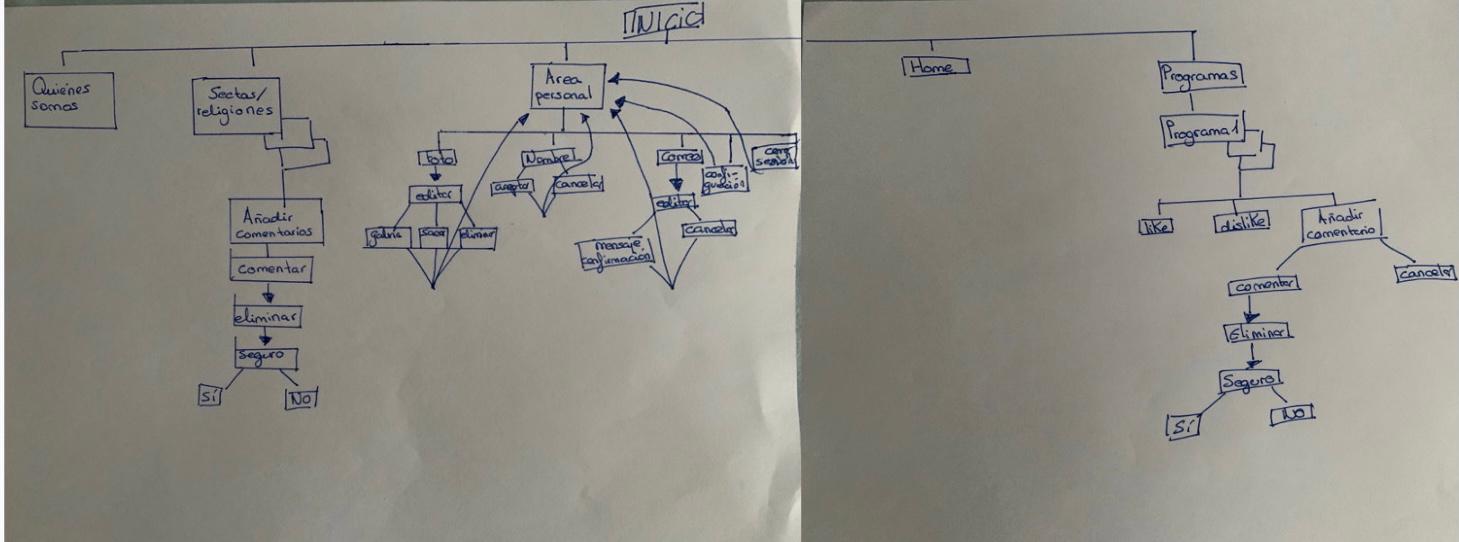 INICIO
Quiénes
somos
Sectas/
religiones
Añadir
comentarios
comentar
eliminar
seguro
Sí
No
Area
personal
foto
editar
galería
sacar
eliminar
Nombre
aceptar
cancelar
Correo
editar
mensaje
confirmación
cancelar
confi-
guración
cerrar
sesión
Home
Programas
Programa 1
like
dislike
Añadir
comentario
comentar
cancelar
Eliminar
Seguro
Sí
No